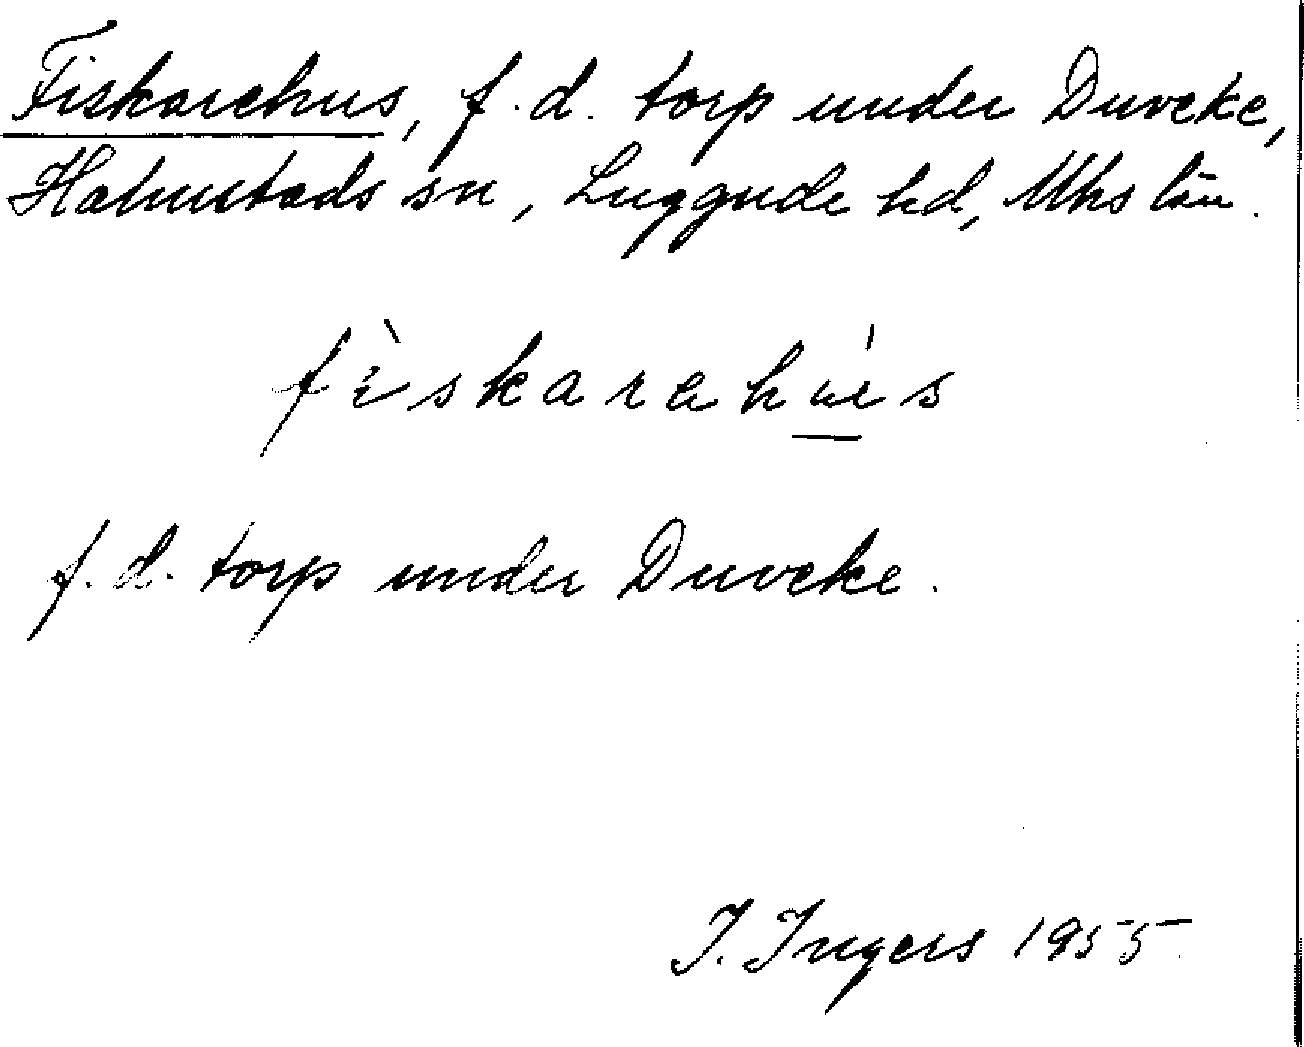 Fiskarehus, f.d. torp under Duveke,
Halmstads sn, Luggude hd, Mhs län.
fìskarahúes
f.d. torp under Duveke.
I. Ingers 1955